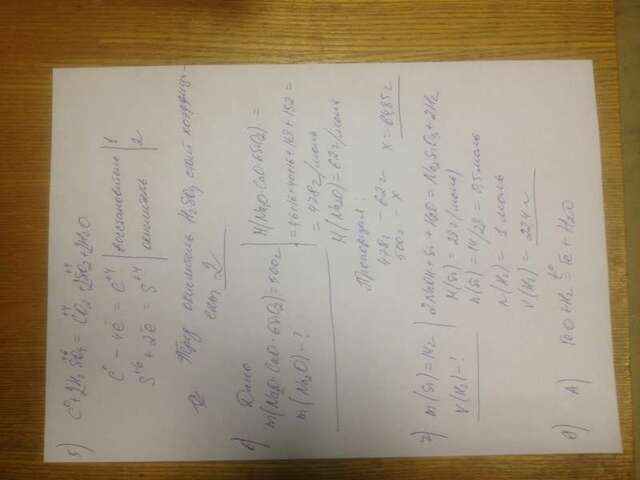 5) C⁰ + 2H₂S⁺⁶O₄ = C⁺⁴O₂ + 2S⁺⁴O₂ + 2H₂O
C⁰ - 4ē = C⁺⁴ | восстановитель | 1
S⁺⁶ + 2ē = S⁺⁴ | окислитель | 2
Перед окислитель H₂SO₄ стоит коэффици-
ент 2
6) Дано
m(Na₂O·CaO·6SiO₂) = 500г
m(Na₂O) - ?
M(Na₂O·CaO·6SiO₂) =
= 46+16+40+16+168+192 =
= 478 г/моль
M(Na₂O) = 62 г/моль
Пропорция:
478г - 62г
500г - x
x = 64,85г
7) m(Si) = 14г
V(H₂) - ?
2NaOH + Si + H₂O = Na₂SiO₃ + 2H₂
M(Si) = 28 г/моль)
n(Si) = 14/28 = 0,5 моль
n(H₂) = 1 моль
V(H₂) = 22,4 л
8) A) FeO + H₂ =t⁰ Fe + H₂O